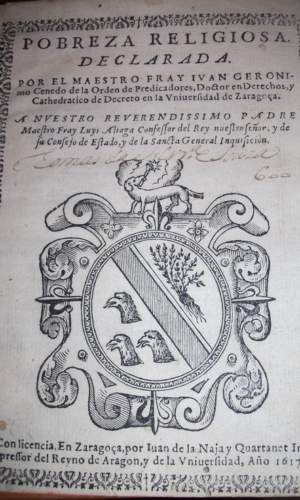 POBREZA RELIGIOSA.
DECLARADA.
POR EL MAESTRO FRAY IVAN GERONI-
mo Cenedo de la Orden de Predicadores, Doctor en Derechos, y
Cathedratico de Decreto en la Vniuersidad de Zaragoça.
A NVESTRO REVERENDISSIMO PADRE
Maestro Fray Luys Aliaga Confessor del Rey nuestro señor, y de
su Consejo de Estado, y de la Sancta General Inquisicion.
Con licencia, En Zaragoça, por Iuan de la Naja y Quartanet Im
pressor del Reyno de Aragon, y de la Vniuersidad, Año 1617